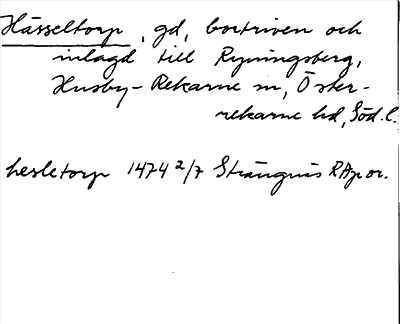 Hässeltorp, gd, bortriven och
inlagd till Ryningsberg,
Husby-Rekarne sn, Öster-
rekarne hd, Söd. l.
hesletorp 1474 2/7 Strängnäs RAp or.